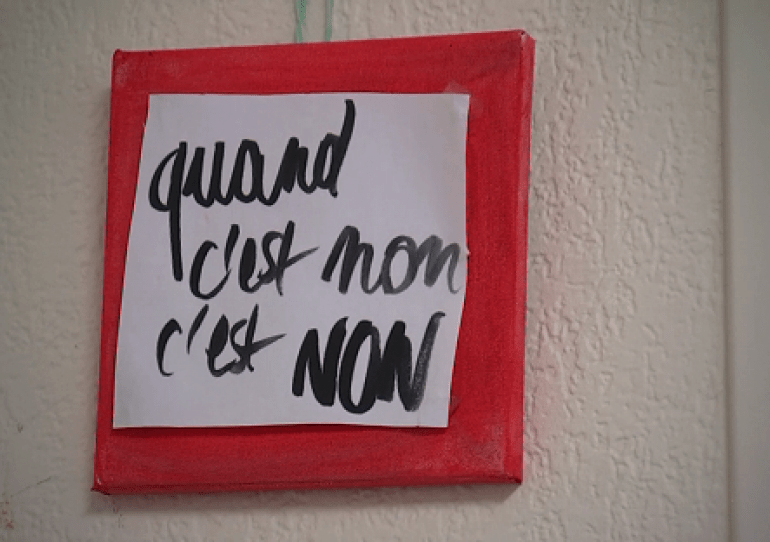 quand
c'est non
c'est NON